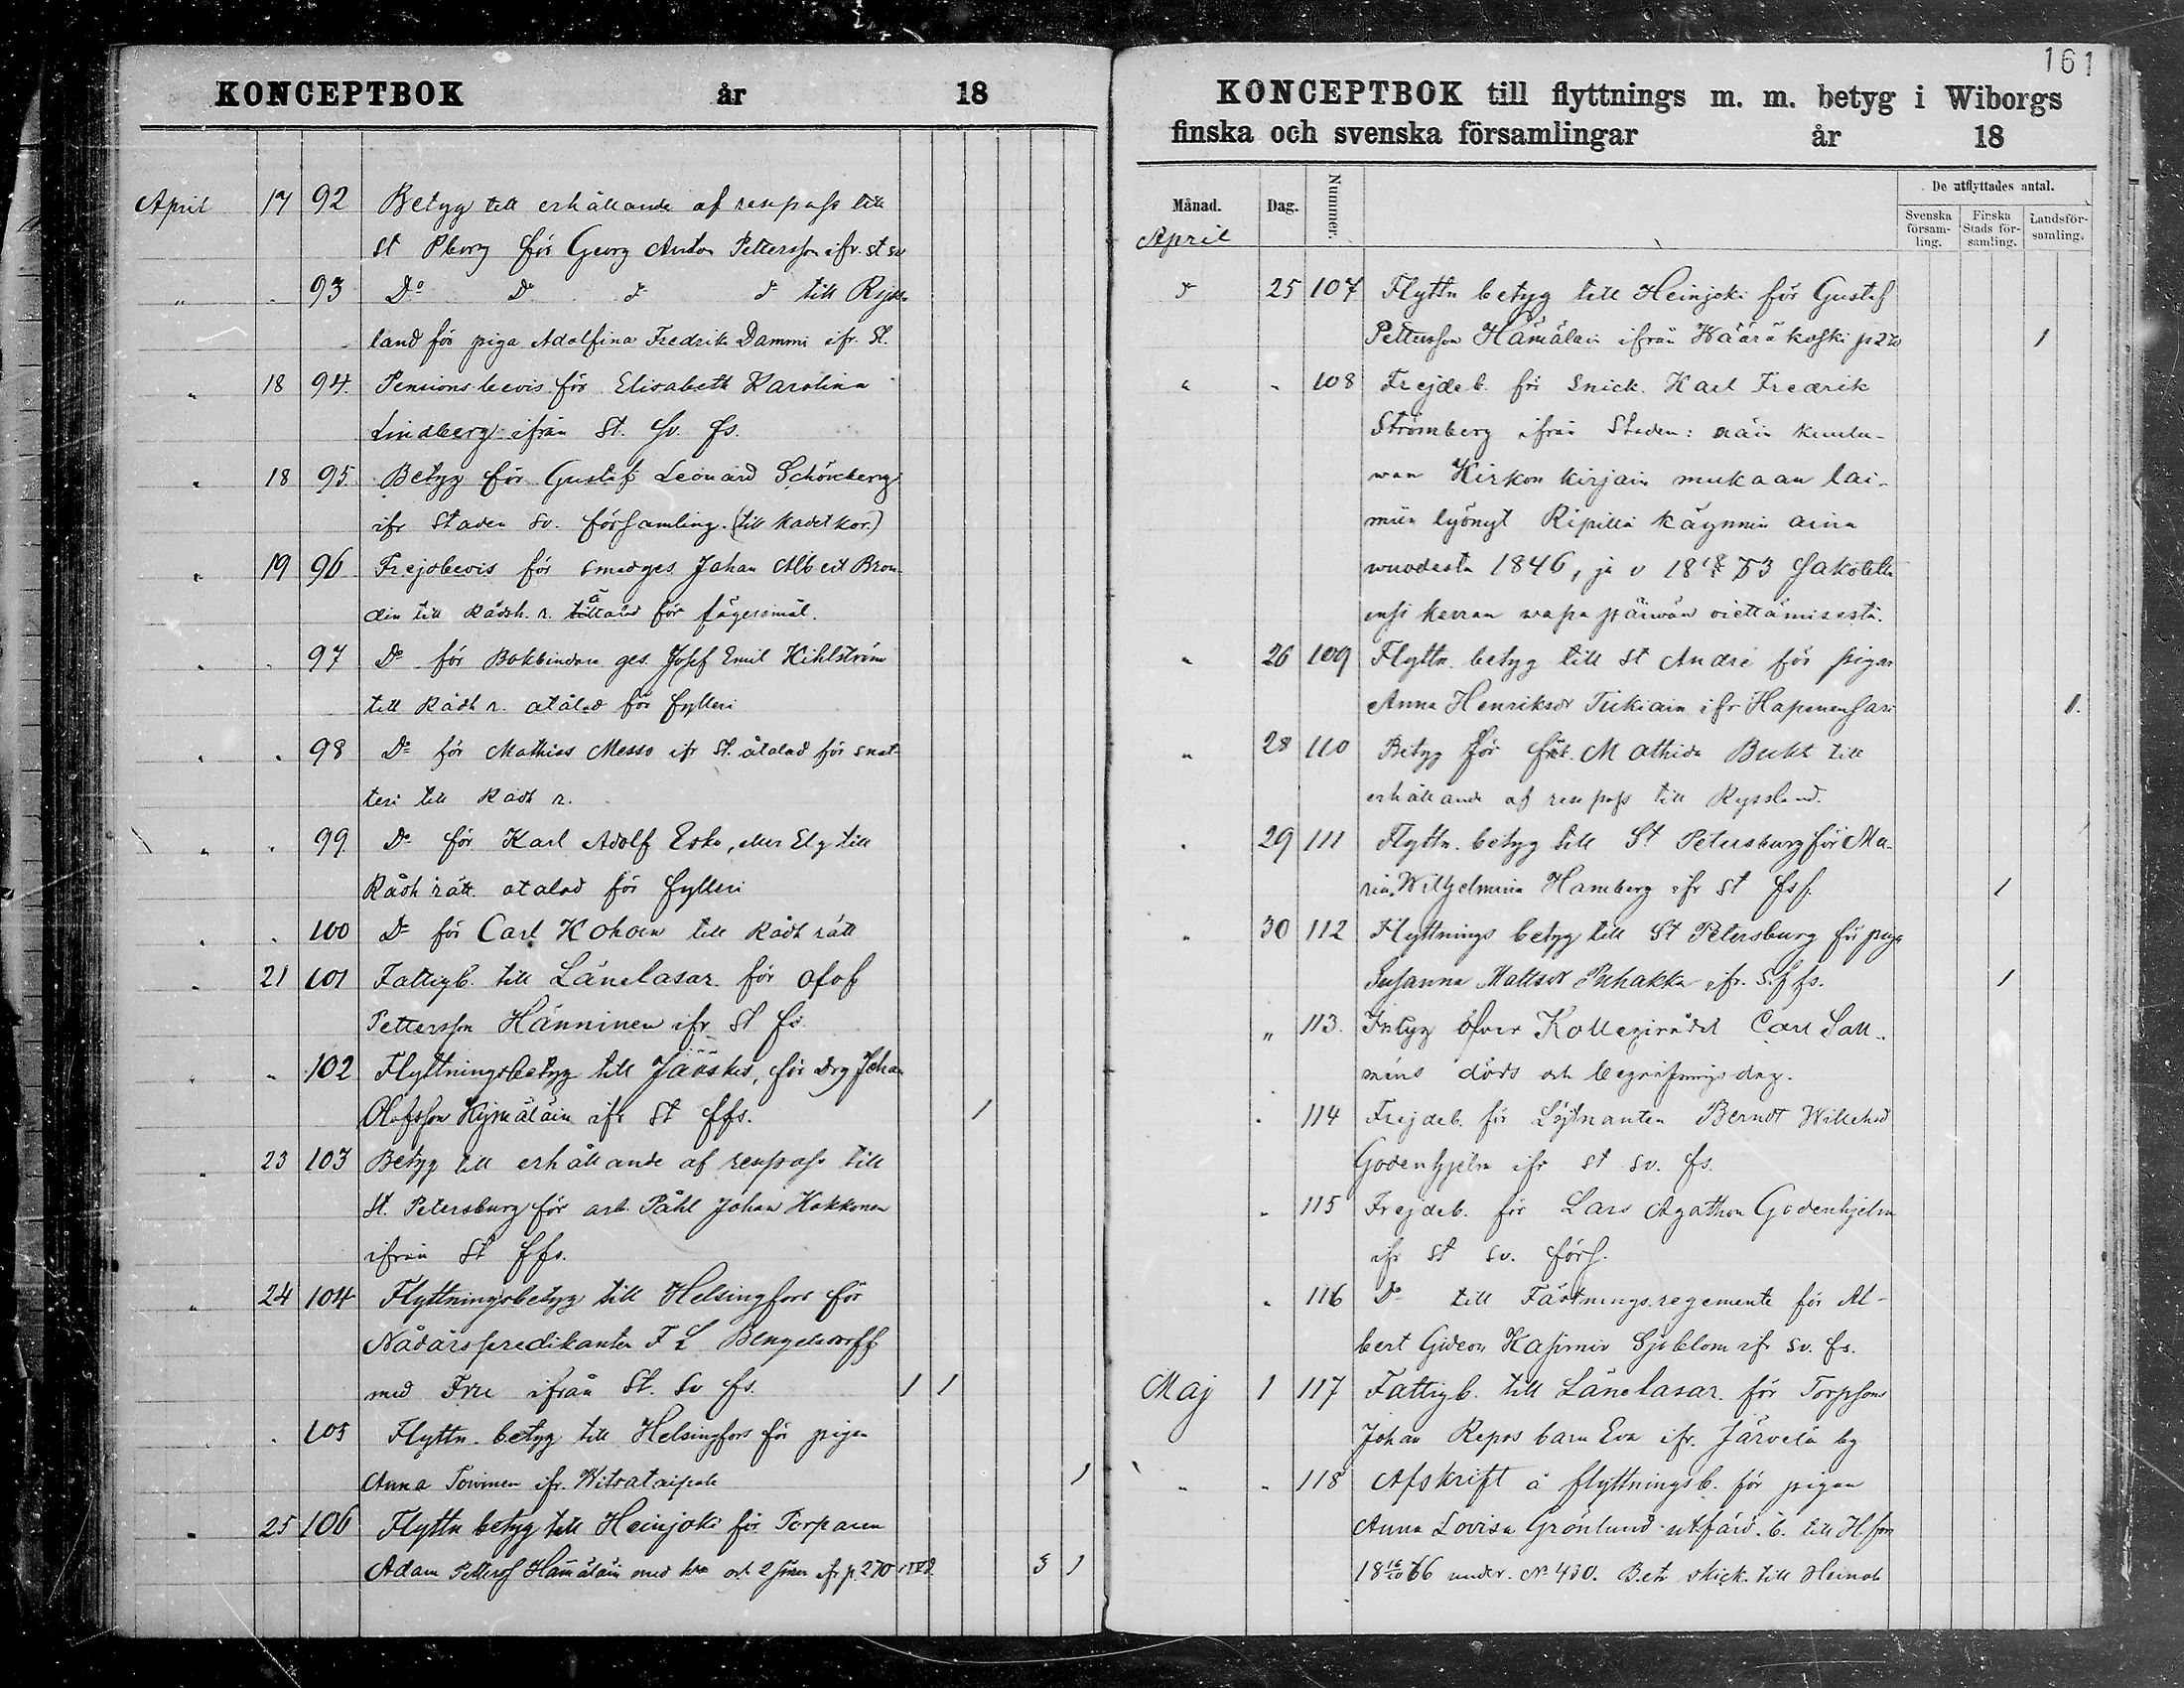 KONCEPTBOK år 18
April 17 92 Betyg till erhållande af respass till
St Pborg för Georg Anton Pettersson ifr. st sv
" . 93 Do Do d d till Ryss-
land för piga Adolfina Fredrika Dammi ifr. St.
" 18 94. Pensionsbevis för Elisabeth Karolina
Lindberg ifrån St. Sv. fs.
" 18 95. Betyg för Gustaf Leonard Schöneberg
ifr Staden Sv. församling. (till Kadetkor.)
" 19 96 Frejdbevis för smedges. Johan Albert Bron-
din till Rådsh. r. åtalad för
" . 97 Do för Bokbindare ges. Josef Emil Kihlström
till Rådh r. atalad för fylleri
" . 98 Do för Mathias Messo ifr St. åtalad för snat-
teri till Rådh r.
" . 99 Do för Karl Adolf Esko, eller Elg till
Rådh rätt. atalad för fylleri
" . 100 Do för Carl Kohoin till Rådh rätt
" 21 101 Fattigb. till Länelasar. för Olof
Pettersson Hänninen ifr St fs.
" " 102 Flyttningsbetyg till Jääskis, för Drg Johan
Olofsson Kymäläin ifr St ffs. 1
" 23 103 Betyg till erhållande af respass till
St. Petersburg för arb. Påhl Johan Hakkonen
ifrån St ffs.
" 24 104 Flyttningsbetyg till Helsingfors för
Nådårspredikanten F L Bengelsdorff
med Fru ifrån St. Sv fs. 1 1
. 105 Flyttn. betyg till Helsingfors för pigan
Anna Toivinen ifr. Witsataipale 1
" 25 106 Flyttn betyg till Heinjoki för Torparen
Adam Petterss Hämäläin med hu och 2 söner ifr p. 270 3 1
161
KONCEPTBOK till flyttnings m. m. betyg i Wiborgs
finska och svenska församlingar år 18
Månad. Dag. Nummer. De utflyttades antal.
Svenska församling. Finska Stads församling. Landsförsamling.
April
d 25 107 Flyttn betyg till Heinjoki för Gustaf
Pettersson Hämäläin ifrån Kääräkoski p 270 1
" " 108 Frejdeb. för Snick. Karl Fredrik
Strömberg ifrån Staden: näin kuulu-
wan Kirkon kirjain mukaan lai-
miin lyönyt Ripillä käynnin aina
wuodesta 1846, ja v 18 53 Sakotettu
ensi kerran wapa päiwän viettämisestä.
" 26 109 Flyttn. betyg till St Andre för pigan
Anna Henriksdr Tiikiain ifr Hapenensari 1.
" 28 110 Betyg för frk. Mathida Bukt till
erhållande af respass till Ryssland.
. 29 111 Flyttn. betyg till St Petersburg för Ma-
ria Wilhelmina Hamberg ifr St fsf. 1
" 30 112 Flyttnings betyg till St Petersburg för piga
Susanna Mattsdr Puhakka ifr. S.f fs. 1
" 113. Intyg öfver Kollegirådet Carl Sall-
méns döds och begrafnings dag.
. 114 Frejdeb. för Löjtnanten Berndt Willehad
Godenhjelm ifr St Sv. fs.
" 115 Frejdeb. för Lars Agathon Godenhjelm
ifr St Sv. förs.
" 116 Do till Fästnings regemente för Al-
bert Gideon Kasimir Sjöblom ifr Sv. fs.
Maj 1 117 Fattigb. till Länelasar. för Torpsons
Johan Repos barn Eva ifr. Järvelä by
" " 118 Afskrift å flyttningsb. för pigan
Anna Lovisa Grönlund utfärd. b. till H.fors
18 66 under. No 430. Bet. skick. till Heinola